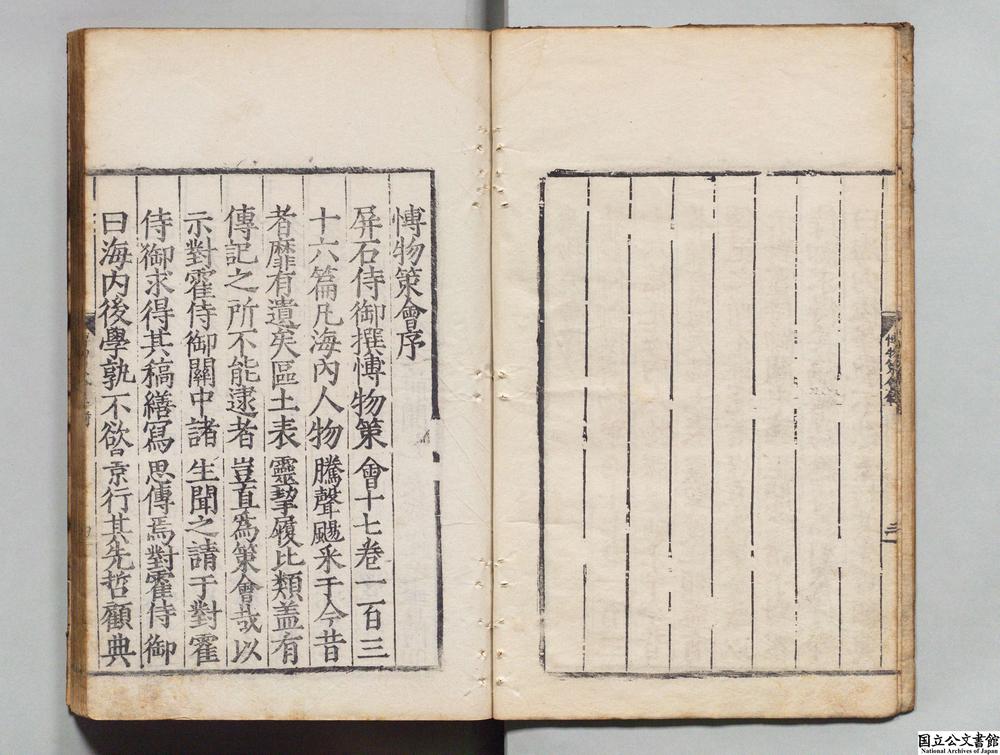 博物策會序
屏石侍御撰博物策會十七卷一百三
十六篇凡海內人物騰聲颺采于今昔
者靡有遺矣區土表靈挈履比類蓋有
傳記之所不能逮者豈直爲策會哉以
示對霍侍御關中諸生聞之請于對霍
侍御求得其稿繕寫思傳焉對霍侍御
曰海內後學孰不欲景行其先哲顧典
博物策會
二
国立公文書館
National Archives of Japan